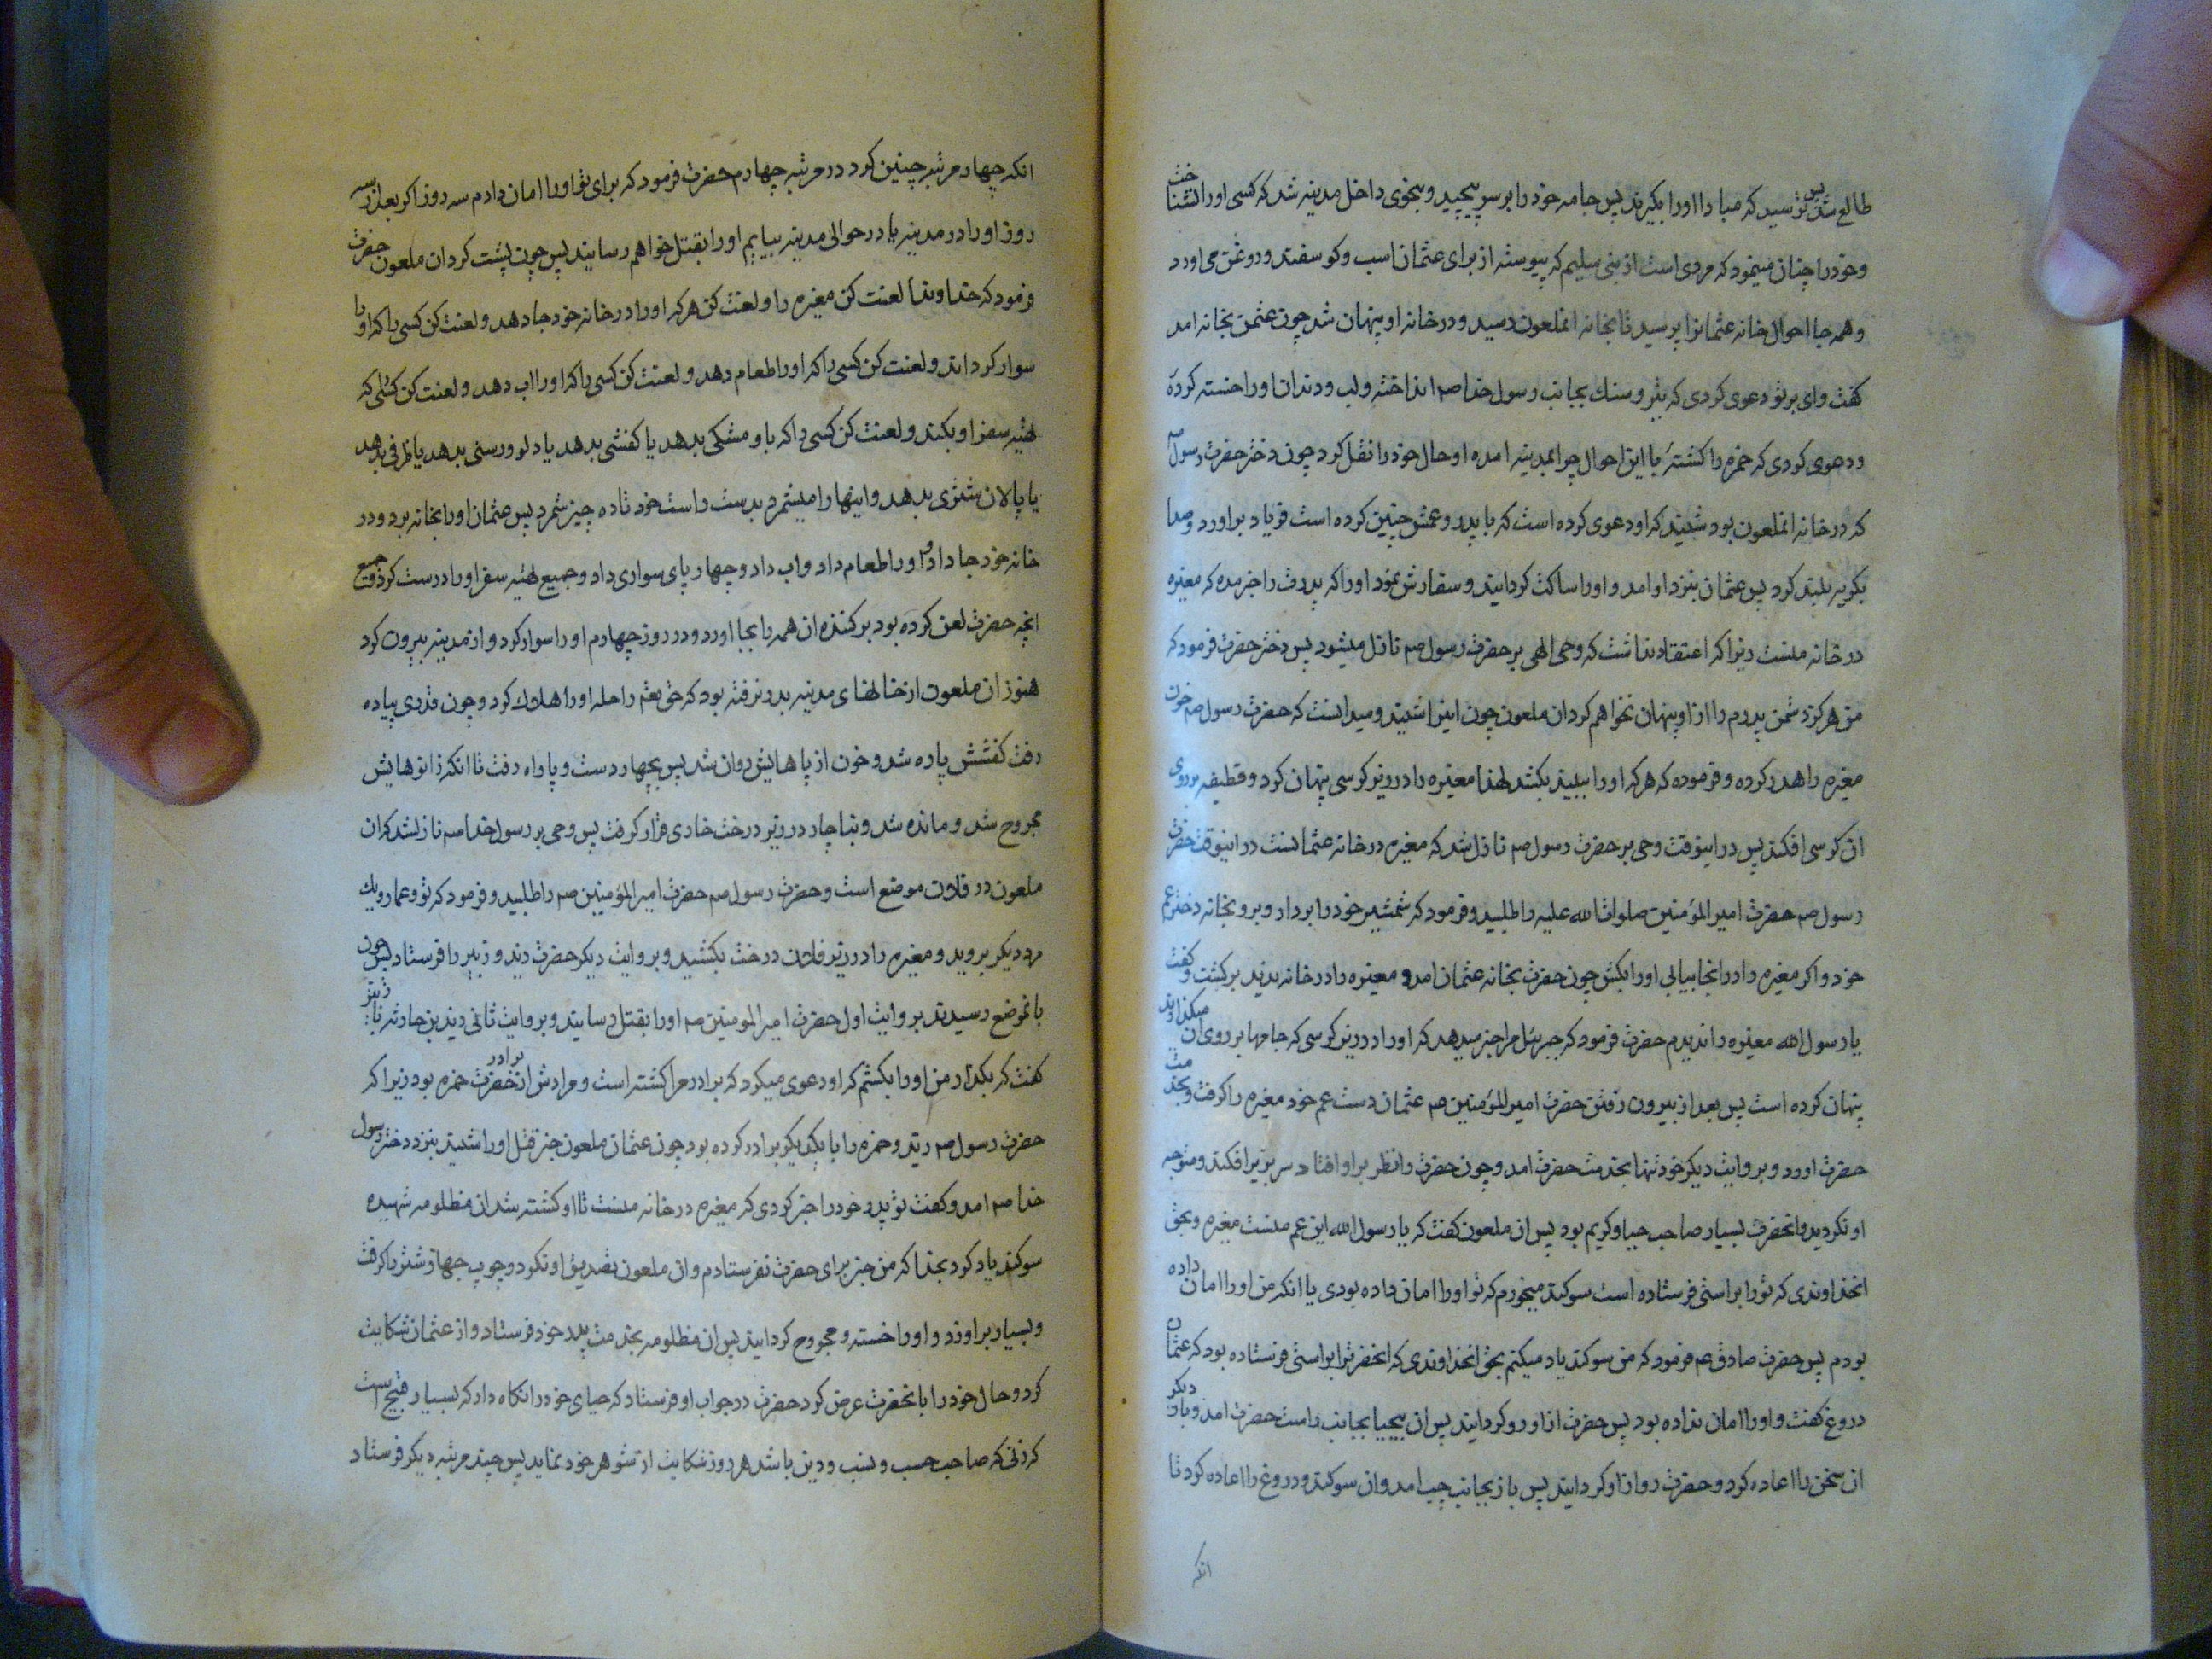 طالع شد پس ترسید که مبادا اورا بگیرند پس جامه خود را بر سر پیچید و بنحوی داخل مدینه شد که کسی اورا نشناخت
وخود را چنان مینمود که مردی است از بنی سلیم که پیوسته از برای عثمان اسب و کوسفند و روغن می اورد
و همه جا احوال خانه عثمانرا پرسید تا بخانه انملعون رسید و در خانه او پنهان شد چون عثمن بخانه امد
کفت وای بر تو دعوی کردی که تیر و سنك بجانب رسول خدا صم انداخته و لب و دندان اورا خسته کرده
و دعوی کردی که حمزه را کشتهٔ با این احوال چرا بمدینه امده او حال خود را نقل کرد چون دختر حضرت رسول صم
که در خانه انملعون بود شنید که او دعوی کرده است که با پدر و عمش چنین کرده است فریاد براورد و صدا
بکریه بلند کرد پس عثمان بنزد او امد و اورا ساکت کردانید و سفارش نمود اورا که پدرت را خبر مده که مغیره
در خانه منست زیرا که اعتقاد نداشت که وحی الهی بر حضرت رسول صم نازل میشود پس دختر حضرت فرمود که
من هرکز دشمن پدرم را از او پنهان نخواهم کرد ان ملعون چون اینرا شنید و میدانست که حضرت رسول صم خون
مغیره را هدر کرده و فرموده که هر که اورا ببیند بکشد لهذا مغیره را در زیر کرسی پنهان کرد و قطیفه بر روی
ان کرسی افکند پس در اینوقت وحی بر حضرت رسول صم نازل شد که مغیره در خانه عثمانست در اینوقت حضرت
رسول صم حضرت امیر المؤمنین صلوات الله علیه را طلبید و فرمود که شمشیر خود را بردار و برو بخانه دختر عم
خود و اکر مغیره را در انجا بیابی اورا بکش چون حضرت بخانه عثمان امد و مغیره را در خانه ندید برکشت و کفت
یا رسول الله مغیره را ندیدم حضرت فرمود که جبرئیل مرا خبر میدهد که اورا در زیر کرسی که جامها بر روی ان میکذارند
پنهان کرده است پس بعد از بیرون رفتن حضرت امیر المؤمنین صم عثمان دست عم خود مغیره را کرفت و بخدمت
حضرت اورد و بروایت دیکر خود تنها بخدمت حضرت امد و چون حضرت را نظر بر او افتاد سر بزیر افکند و متوجه
او نکردید و انحضرت بسیار صاحب حیا و کریم بود پس ان ملعون کفت که یا رسول الله این عم منست مغیره و بحق
انخداوندی که ترا براستی فرستاده است سوکند میخورم که تو اورا امان داده بودی یا انکه من اورا امان داده
بودم پس حضرت صادق عم فرمود که من سوکند یاد میکنم بحق انخداوندی که انحضرترا براستی فرستاده بود که عثمان
دروغ کفت و اورا امان نداده بود پس حضرت از او رو کردانید پس ان بیحیا بجانب راست حضرت امد و بار دیکر
ان سخن را اعاده کرد و حضرت رو از او کردانید پس باز بجانب چپ امد و ان سوکند و دروغ را اعاده کرد تا
انکه
انکه چهار مرتبه چنین کرد در مرتبه چهارم حضرت فرمود که برای تو اورا امان دادم سه روز اکر بعد از سه
روز اورا در مدینه یا در حوالی مدینه بیابم اورا بقتل خواهم رسانید پس چون پشت کرد ان ملعون حضرت
فرمود که خداوندا لعنت کن مغیره را و لعنت کن هر که اورا در خانه خود جا دهد و لعنت کن کسی را که او را
سوار کرداند و لعنت کن کسی را که اورا طعام دهد و لعنت کن کسی را که اورا اب دهد و لعنت کن کسی را که
تهیه سفر او بکند و لعنت کن کسی را که باو مشکی بدهد یا کفشی بدهد یا دلو و رسنی بدهد یا ظرفی بدهد
یا پالان شتری بدهد و اینها را میشمرد بدست راست خود تا ده چیز شمرد پس عثمان اورا بخانه برد و در
خانه خود جا داد و اورا طعام داد و اب داد و چهار پای سواری داد و جمیع تهیه سفر اورا درست کرد و جمیع
انچه حضرت لعن کرده بود بر کننده ان همه را بجا اورد و در روز چهارم اورا سوار کرد و از مدینه بیرون کرد
هنوز ان ملعون از خانهای مدینه بدر نرفته بود که حق تعم راحله اورا هلاك کرد و چون قدری پیاده
رفت کفشش پاره شد و خون از پاهایش روان شد پس بچهار دست و پا راه رفت تا انکه زانوهایش
مجروح شد و مانده شد و بناچار در زیر درخت خاری قرار کرفت پس وحی بر رسول خدا صم نازلشد که ان
ملعون در فلان موضع است و حضرت رسول صم حضرت امیر المؤمنین صم را طلبید و فرمود که تو و عمار و یك
مرد دیکر بروید و مغیره را در زیر فلان درخت بکشید و بروایت دیکر حضرت زید و زبیر را فرستاد پس چون
بانموضع رسیدند بروایت اول حضرت امیر المومنین صم اورا بقتل رسانید و بروایت ثانی زید بن حارثه با زبیر
کفت که بکذار من اورا بکشم که او دعوی میکرد که برادر مرا کشته است و مرادش از برادر حضرت حمزه بود زیرا که
حضرت رسول صم زید و حمزه را با یکدیکر برادر کرده بود چون عثمان ملعون خبر قتل اورا شنید بنزد دختر رسول
خدا صم امد و کفت تو پدر خود را خبر کردی که مغیره در خانه منست تا او کشته شد ان مظلومه شهیده
سوکند یاد کرد بخدا که من خبر برای حضرت نفرستادم و ان ملعون تصدیق او نکرد و چوب جهاز شتر را کرفت
و بسیار بر او زد و اورا خسته و مجروح کردانید پس ان مظلومه بخدمت پدر خود فرستاد و از عثمان شکایت
کرد و حال خود را بانحضرت عرض کرد حضرت در جواب او فرستاد که حیای خود را نکاه دار که بسیار قبیح است
که زنی که صاحب حسب و نسب و دین باشد هر روز شکایت از شوهر خود نماید پس چند مرتبه دیکر فرستاد